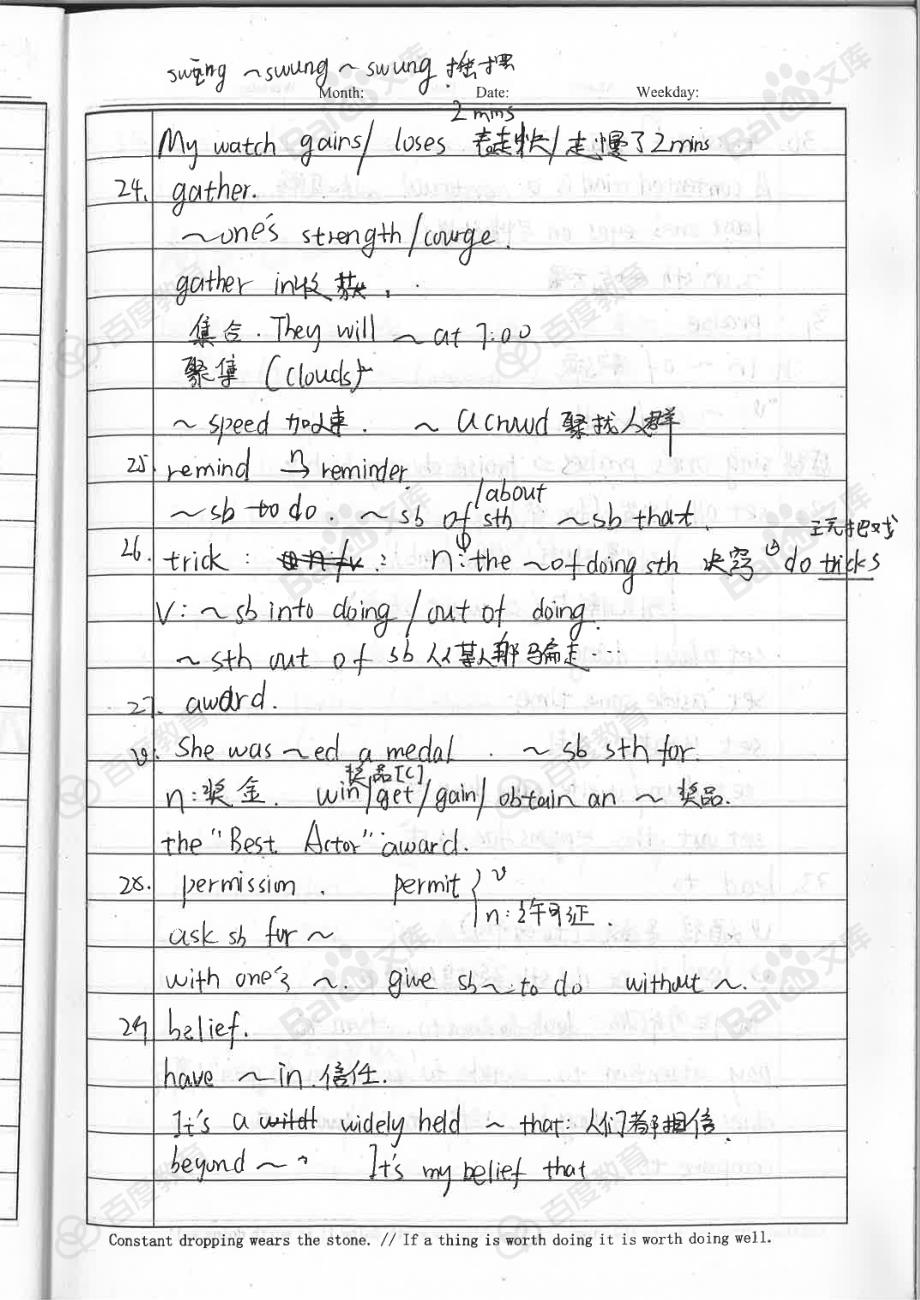 swing ~swung ~ swung 摇摆
Month: Date: Weekday:
2 mins
My watch gains/ loses 表走快/走慢了2mins
24. gather.
~one's strength/courge.
gather in收获.
集合. They will ~ at 7:00
聚集 (clouds)
~ speed 加速. ~ a crowd 聚找人群
25. remind n→ reminder.
~sb to do. ~sb of sth /about ~sb that.
26. trick : n:the ~of doing sth 诀窍 do tricks 玩把戏
V: ~sb into doing / out of doing.
~ sth out of sb 从某人那骗走…
27. award.
v: She was ~ed a medal. ~ sb sth for.
奖品[C]
n:奖金. win/get/gain/obtain an ~ 奖品.
the "Best Actor" award.
28. permission. permit { v
n:许可证.
ask sb for ~
with one's ~. give sb~ to do without ~.
29 belief.
have ~ in.信任.
It's a widely held ~ that: 人们都相信.
beyond ~ It's my belief that
Constant dropping wears the stone. // If a thing is worth doing it is worth doing well.
Baidu文库
百度教育